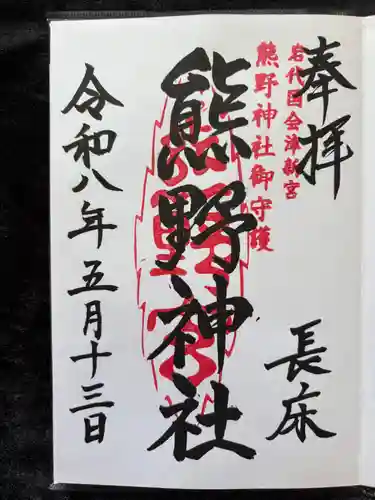 奉拝
岩代国会津新宮
熊野神社御守護
長床
熊野神社
令和八年五月十三日